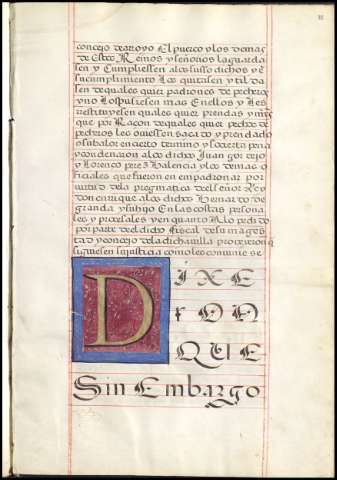 concejo de arroyo El puerco y los demas
de Estos Reinos y señorios la guarda
sen y Cumpliessen a los susso dichos y ē
su cumplimiento Los quitasen y tilda
sen de quales quier padrones de pecheros
y no Los pusiesen mas En ellos y Les
Restituyesen quales quier prendas y mrs
que por Raçon de quales quier pedros de
pecheros les ovessen sacado y prendado
o su balor en cierto termino y so cierta pena
y condenaron a los dichos Juan gor rejo
y Lorenço perez Valencia y los demas o
ficiales que fueron en empadronar por
virtud de la pregmatica del señor Rey
don enrique a los dichos Hernando de
granda y su hijo En las costas persona
les y procesales y en quanto A lo pedido
por parte del dicho fiscal de su mages
tad y concejo de la dicha villa proveieron q̄
siguiesen su justicia como les conviniese
DIXE
rON
QUE
Sin Embargo